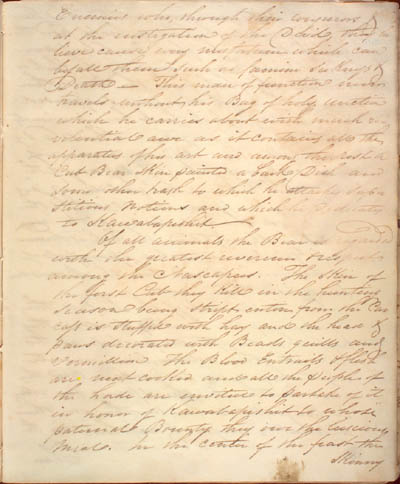 Enemies who, through their conjurors &
at the instigation of the Devil, they be
lieve cause every misfortune which can
befall them such as famine Sickness &
Death — This man of function never
travels without his Bag of holy
which he carries about with much re
verential awe as it contains all the
apparatus of his art and among the rest a
Cub Bear Skin painted a bark Dish and
some other trash to which he attaches supers
titious notions and which he
to Kawabapishit —
Of all animals the Bear is regarded
with the greatest reverence & respect
among the Nascapees. The Skin of
the first Cub they Kill in the hunting
Season being stript entire from the Car
cass is stuffed with hay and the head &
paws decorated with Beads, quills and
Vermillion. The Blood Entrails & flesh
are next cooked and all the people of
the horde are invited to partake of it
in honor of Kawabapishit to whose
external Bounty they owe the luscious
meal. In the center of the feast the
Skinny